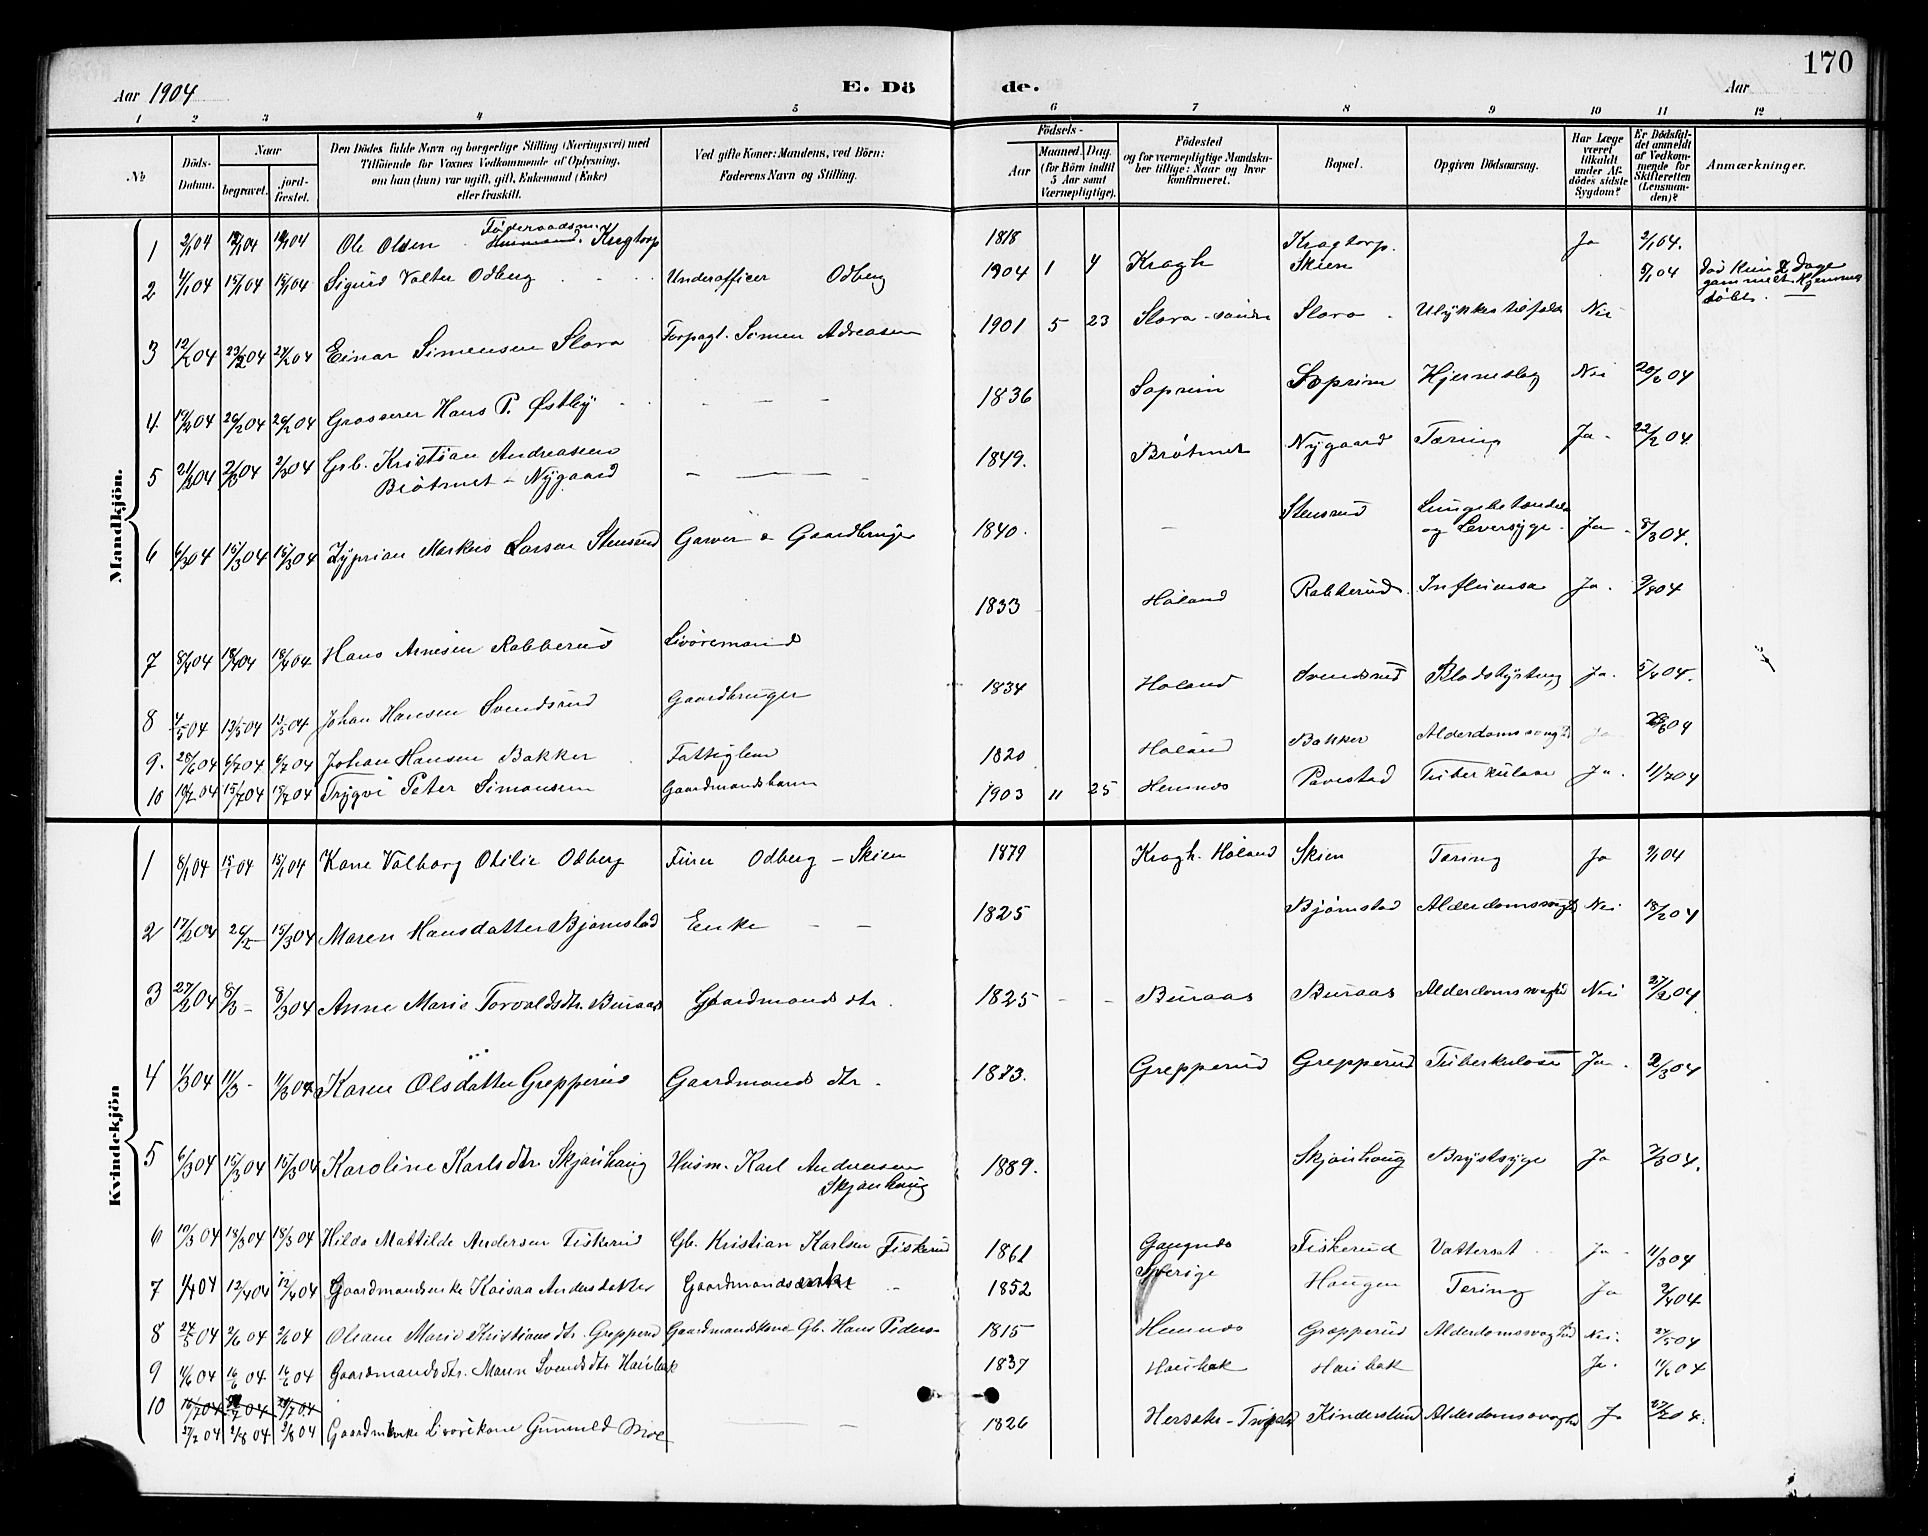 170
Aar 1904 E. Dö de. Aar
1 2 3 4 5 6 7 8 9 10 11 12
№
Döds-Datum.
Naar
begravet.
jord-fæstet.
Den Dödes fulde Navn og borgerlige Stilling (Næringsvei) med
Tilföiende for Voxnes Vedkommende af Oplysning,
om han (hun) var ugift, gift, Enkemand (Enke)
eller fraskilt.
Ved gifte Koner: Mandens, ved Börn:
Faderens Navn og Stilling.
Födsels-
Aar
Maaned. Dag.
(for Börn indtil
5 Aar samt
Værnepligtige).
Födested
og for værnepligtige Mandska-
ber tillige: Naar og hvor
konfirmeret.
Bopæl.
Opgiven Dödsaarsag.
Har Læge
været
tilkaldt
under Af-
dödes sidste
Sygdom?
Er Dödsfal-
det anmeldt
af Vedkom-
mende for
Skifteretten
(Lensman-
den)?
Anmærkninger.
Mandkjön.
1 2/1 04 Ole Olsen Föderaadsm. Husmand. Kragtorp 1818 Kragtorp. Ja 2/1 04.
2 4/1 04 15/1 04 15/1 04 Sigurd Valter Odberg Underofficer Odberg 1904 1 4 Kragh Skien 5/1 04 Död Kun 2 Dage
gammelt. Hjemme
döbt.
3 12/2 04 23/2 04 23/2 04 Einar Simensen Slora Forpagt. Simen Adreasen 1901 5 23 Slora - söndre Slora Ulykkestilfælde Nei
4 19/2 04 26/2 04 26/2 04 Grosserer Hans P. Østby 1836 Soprim Soprim Hjerneslag Nei 20/2 04
5 21/2 04 2/3 04 2/3 04 Grb. Kristian Andreasen
Brötmet - Nygaard 1849. Brötmet Nygaard Tæring Ja 22/2 04
6 6/3 04 15/3 04 15/3 04 Zyprian Markus Larsen Stensrud Garver & Gaardbruger 1840. Stensrud Lungebetændelse
og Leversyge. Ja 8/3 04.
7 8/4 04 18/4 04 18/4 04 Hans Arnesen Rabberud Livöremand 1833 Höland Rabberud Influensa Ja. 9/4 04
8 4/5 04 13/5 04 13/5 04 Johan Hansen Svendsrud Gaardbruger 1834 Höland Svendsrud Blodstyrtng Ja. 5/5 04.
9. 28/6 04 6/7 04 6/7 04 Johan Hansen Bakker Fattiglem 1820 Höland Bakker Alderdomssvaghed Ja
10 10/7 04 15/7 04 15/7 04 Trygvi Peter Simonsen Gaardmandsbarn 1903 11 25 Hemnes Pavestad Tuberkulose Ja. 11/7 04
Kvindekjön
1 8/1 04 15/1 04 15/1 04 Kare Valborg Otilie Odberg Furer Odberg - Skien 1879 Kragh. Höland Skien Tæring Ja 9/1 04
2 17/2 04 26/2 - 15/3 04 Maren Hansdatter Bjørnstad Enke 1825 Bjørnstad Alderdomssvaghed Nei 18/2 04
3 27/2 04 8/3 - 8/3 04 Anne Marie Torvaldsdtr. Buraas Gaardmands dtr. 1825 Buraas Buraas Alderdomssvaghed Nei 27/2 04
4 1/3 04 11/3 - 11/3 04 Karen Olsdatter Grepperud Gaardmands dtr. 1873. Grepperud Grepperud Tuberkulose Ja 2/3 04
5 6/3 04 15/3 04 15/3 04 Karoline Karlsdtr. Skjönhaug Husm. Karl Andersen
Skjönhaug 1889. Skjönhaug Brystsyge Ja 7/3 04.
6 10/3 04 18/3 04 18/3 04 Hilda Mattilde Andersen Fiskerud Gb. Kristian Karlsen Fiskerud 1861 Gangnæs Fiskerud Vattersot Ja 11/3 04
7 1/4 04 12/4 04 12/4 04 Gaardmandsenke Kaisaa Andersdatter Gaardmandsenke 1852 Sverige Haugen Tæring Ja 2/4 04
8 24/5 04 2/6 04 2/6 04 Oleane Marie Kristiansdtr. Grepperud Gaardmandskone Gb. Hans Peders 1815 Hemnes Grepperud Alderdomssvaghed Nei. 27/5 04
9 11/6 04 16/6 04 16/6 04 Gaardmandsdtr. Maren Svendsdtr Hauibak 1837 Hauibak Hauibak Ja. 11/6 04
10 27/7 04 2/8 04 2/8 04 Gaardmenke Livörikone Gunnild Moe 1826 Kinderslund Alderdomssvaghed Ja 27/7 04.